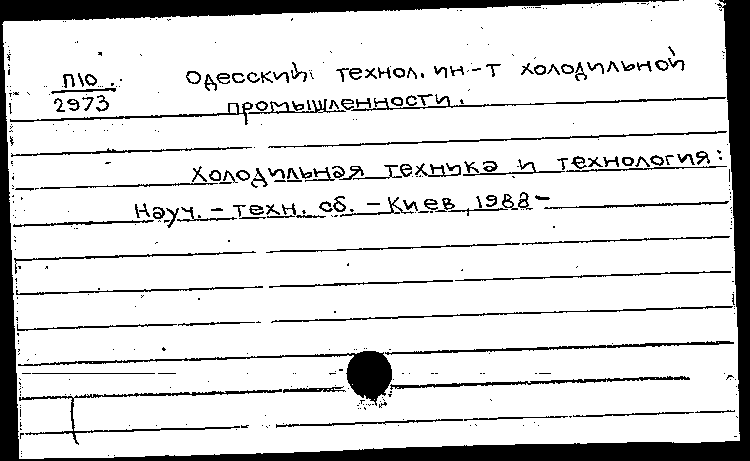 П10
2973
Одесский технол. ин-т холодильной
промышленности.
Холодильная техника и технология:
Науч. - техн. сб. - Киев, 1988-